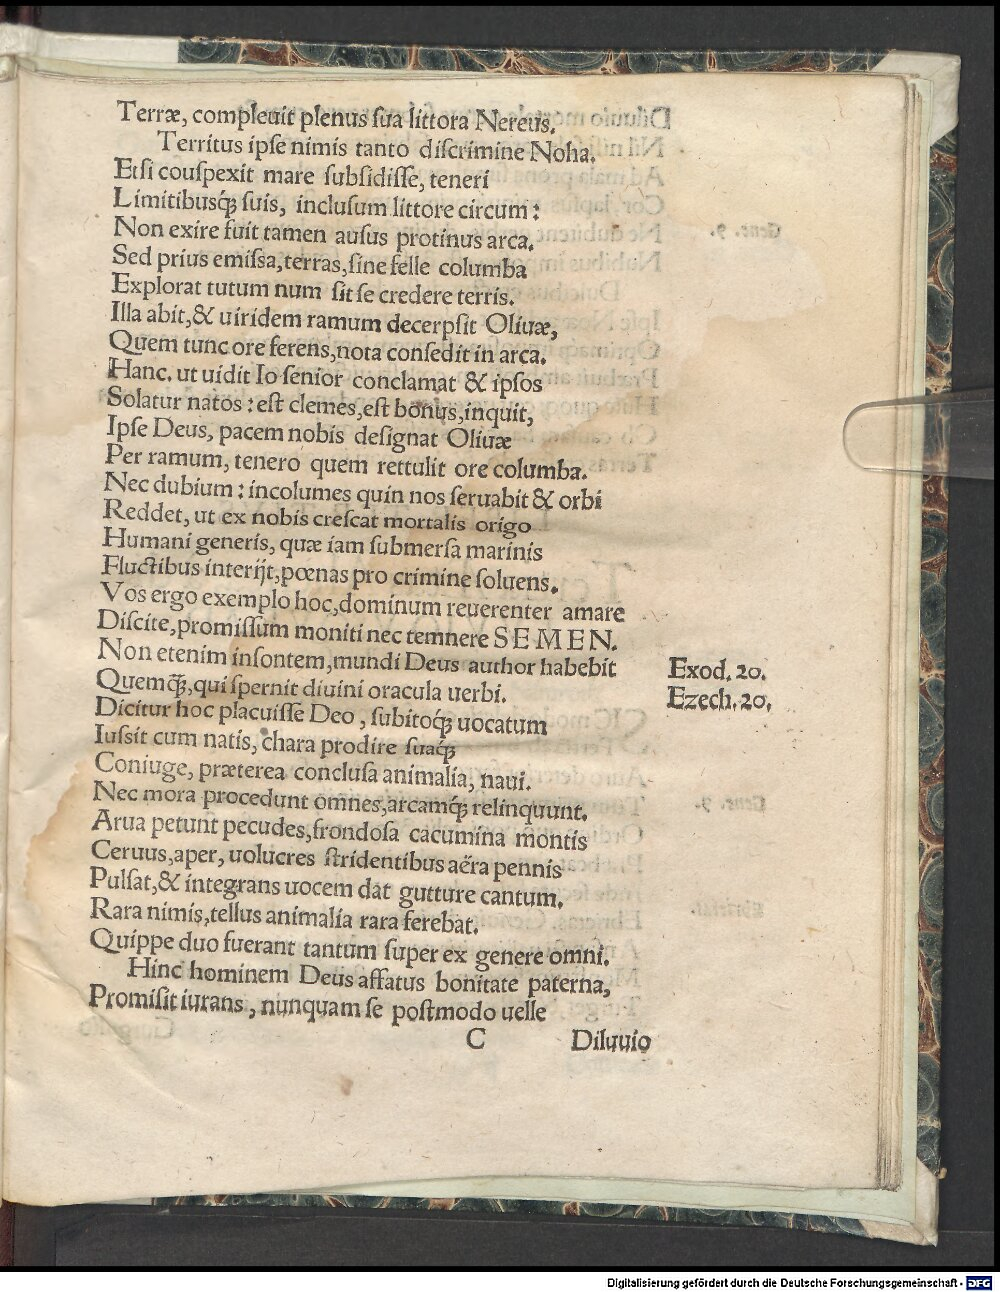 Terræ, compleuit plenus ſua littora Nereus.
Territus ipſe nimis tanto diſcrimine Noha.
Etſi couſpexit mare ſubſidiſſe, teneri
Limitibusq́ꝫ ſuis, incluſum littore circum:
Non exire fuit tamen auſus protinus arca.
Sed prius emiſſa, terras, ſine felle columba
Explorat tutum num ſit ſe credere terris.
Illa abit, & uiridem ramum decerpſit Oliuæ,
Quem tunc ore ferens, nota conſedit in arca.
Hanc. ut uidit Io ſenior conclamat & ipſos
Solatur natos: eſt clemes, eſt bonus, inquit,
Ipſe Deus, pacem nobis deſignat Oliuæ
Per ramum, tenero quem rettulit ore columba.
Nec dubium: incolumes quin nos ſeruabit & orbi
Reddet, ut ex nobis creſcat mortalis origo
Humani generis, quæ iam ſubmerſa marinis
Fluctibus interijt, pœnas pro crimine ſoluens.
Vos ergo exemplo hoc, dominum reuerenter amare
Diſcite, promiſſum moniti nec temnere SEMEN.
Non etenim inſontem, mundi Deus author habebit Exod. 20.
Quemq́ꝫ, qui ſpernit diuini oracula uerbi. Ezech. 20.
Dicitur hoc placuiſſe Deo, ſubitoq́ꝫ uocatum
Iuſsit cum natis, chara prodire ſuaq́ꝫ
Coniuge, præterea concluſa animalia, naui.
Nec mora procedunt omnes, arcamq́ꝫ relinquunt.
Arua petunt pecudes, frondoſa cacumina montis
Ceruus, aper, uolucres ſtridentibus aëra pennis
Pulſat, & integrans uocem dat gutture cantum.
Rara nimis, tellus animalia rara ferebat.
Quippe duo fuerant tantum ſuper ex genere omni.
Hinc hominem Deus affatus bonitate paterna,
Promiſit iurans, nunquam ſe poſtmodo uelle
C Diluuio
Digitalisierung gefördert durch die Deutsche Forschungsgemeinschaft - DFG